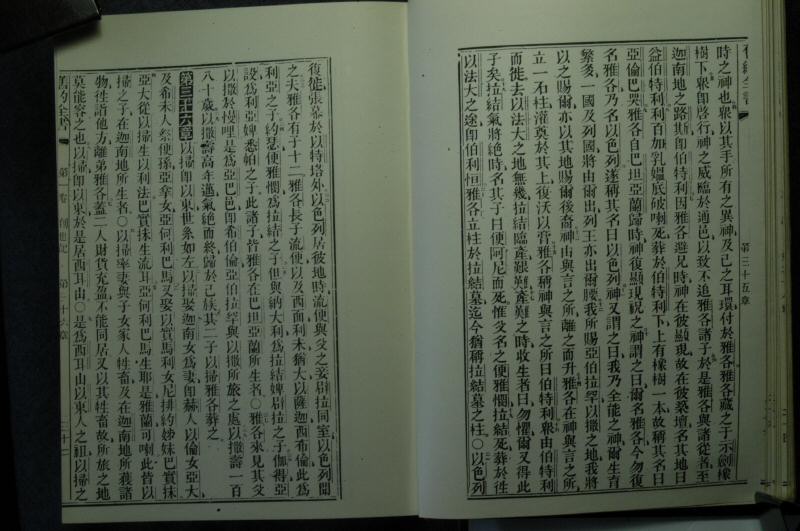 舊約全書
第三十五章
時之神也衆以其手所有之異神及己之耳環付於雅各雅各藏之于示劍橡
樹下衆卽啓行神之威臨於過邑以致不追雅各諸子於是雅各與諸從者至
迦南地之路斯卽伯特利因雅各避兄時神在彼顯現故在彼築壇名其地曰
益伯特利利百加乳媼底破喇死葬於伯特利下上有橡樹一本故稱其名曰
亞倫巴哭雅各自巴坦亞蘭歸時神復顯現祝之神謂之曰爾名雅各今勿復
名雅各乃名以色列遂稱其名曰以色列神又謂之曰我乃全能之神爾生育
繁多一國及列國將由爾出列王亦出爾腰我所賜亞伯拉罕以撒之地我將
以之賜爾亦以其地賜爾後裔神由與言之所離之而升雅各在神與言之所
立一石柱灌奠於其上復沃以膏雅各稱神與言之所曰伯特利衆由伯特利
而徙去以法大之地無幾拉結臨產艱難產艱之時收生者曰勿懼爾又得此
子矣拉結氣將絕時名其子曰便阿尼而死惟父名之便雅憫拉結死葬於往
以法大之途卽伯利恒雅各立柱於拉結墓迄今猶稱拉結墓之柱〇以色列
復徙張幕於以特塔外以色列居彼地時流便與父之妾辟拉同室以色列聞
之夫雅各有子十二雅各長子流便以及西面利未猶大以薩迦西布倫此爲
利亞之子約瑟便雅憫爲拉結之子但與納大利爲拉結婢辟拉之子伽得亞
設爲利亞婢悉帕之子此諸子皆雅各在巴坦亞蘭所生者〇雅各來見其父
以撒於幔哩是爲亞巴邑卽希伯倫亞伯拉罕與以撒所旅之處以撒壽一百
八十歲以撒壽高年邁氣絕而終歸於己族其二子以掃雅各葬之
第三十六章以掃卽以東世系如左以掃娶迦南女爲妻卽赫人以倫女亞大
及希未人祭便孫亞拿女亞何利巴馬又娶以實馬利女尼排約姊妹巴實抹
亞大從以掃生以利法巴實抹生流耳亞何利巴馬生耶是雅蘭可喇此皆以
掃之子在迦南地所生者〇以掃率妻與子女家人牲畜及在迦南地所獲諸
物往詣他方離弟雅各蓋二人財貨充盈不能同居又以其牲畜故所旅之地
莫能容之也以掃卽以東於是居西耳山〇是爲西耳山以東人之祖以掃之
舊約全書
第一卷 創世記 第三十六章
三十二